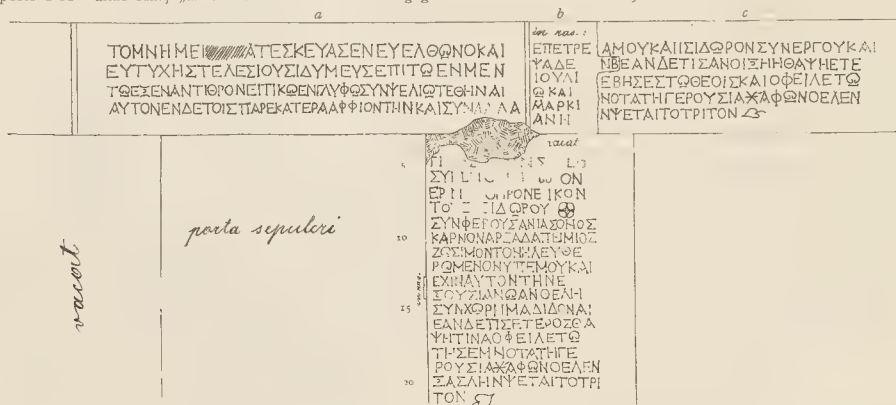 a
ΤΟΜΝΗΜΕΙ ΑΤΕΣΚΕΥΑΣΕΝΕΥΕΛΘΩΝΟΚΑΙ
ΕΥΤΥΧΗΣΤΕΛΕΣΙΟΥΣΙΔΥΜΕΥΣΕΠΙΤΩΕΝΜΕΝ
ΤΩΕΞΕΝΑΝΤΙΘΡΟΝΕΙΤΙΚΩΕΝΓΛΥΦΩΣΥΝΨΕΛΙΩΤΕΘΗΝΑΙ
ΑΥΤΟΝΕΝΔΕΤΟΙΣΠΑΡΕΚΑΤΕΡΑΑΦΦΙΟΝΤΗΝΚΑΙΣΥΝ
b
in ras.:
ΕΠΕΤΡΕ
ΨΑΔΕ
ΙΟΥΛΙ
Ω ΚΑΙ
ΜΑΡΚΙ
ΑΝΗ
c
ΑΜΟΥΚΑΙΙΣΙΔΩΡΟΝΣΥΝΕΡΓΟΥΚΑΙ
ΝΒΕΑΝΔΕΤΙΣΑΝΟΙΞΗΗΘΑΨΗΕΤΕ
ΕΒΗΣΕΣΤΩΘΕΟΙΣΚΑΙΟΦΕΙΛΕΤΩ
ΝΟΤΑΤΗΓΕΡΟΥΣΙΑ✳ΑΦΩΝΟΕΛΕΝ
ΝΨΕΤΑΙΤΟΤΡΙΤΟΝ
vacat
vacat
porta sepulcri
5
ΤΟ ΙΔΩΡΟΥ
ΣΥΝΦΕΡΟΥΣΑΝΙΑΣΟΝΟΣ
10 ΚΑΡΝΟΝΑΡΣΑΔΑΤΕΜΙΟΣ
ΖΩΣΙΜΟΝΤΟΝΗΛΕΥΘΕ
ΡΩΜΕΝΟΝΥΠΕΜΟΥΚΑΙ
in ras.
ΕΧΙΝΑΥΤΟΝΤΗΝΕ
ΞΟΥΣΙΑΝΩΑΝΘΕΛΗ
15 ΣΥΝΧΩΡΗΜΑΔΙΔΟΝΑΙ
ΕΑΝΔΕΤΙΣΕΤΕΡΟΣΘΑ
ΨΗΤΙΝΑΟΦΕΙΛΕΤΩ
ΤΗΣΕΜΝΟΤΑΤΗΓΕ
ΡΟΥΣΙΑ✳ΑΦΩΝΟΕΛΕΝ
20 ΞΑΣΛΗΝΨΕΤΑΙΤΟΤΡΙ
ΤΟΝ